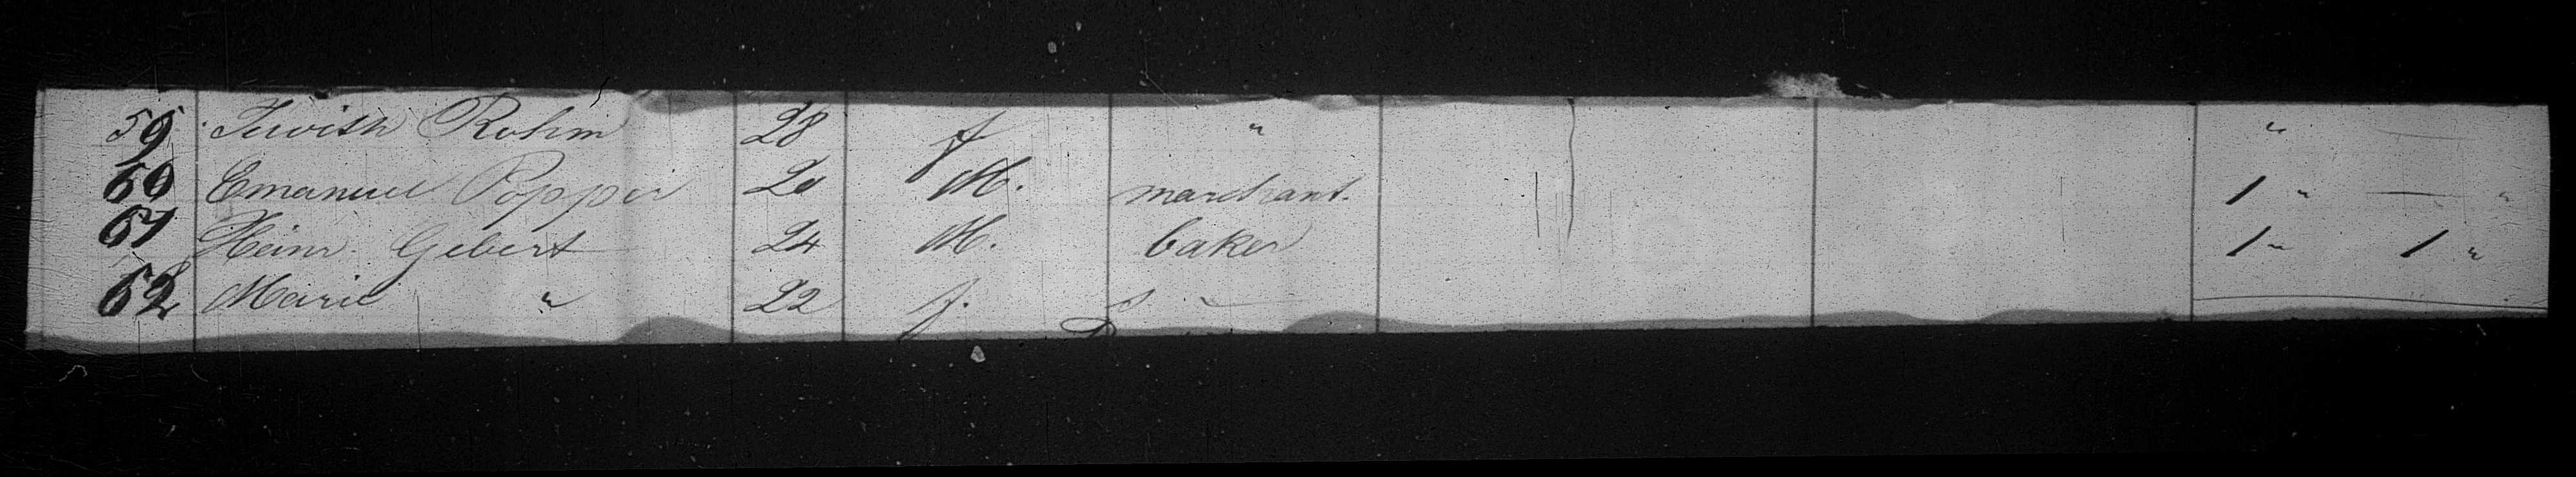 59 Rohm 28 f " "
60 Emanuel Popper 20 M. marchant. 1 " — "
61 Heinr. Gebert 24 M. baker 1 " 1 "
62 Marie " 22 f.